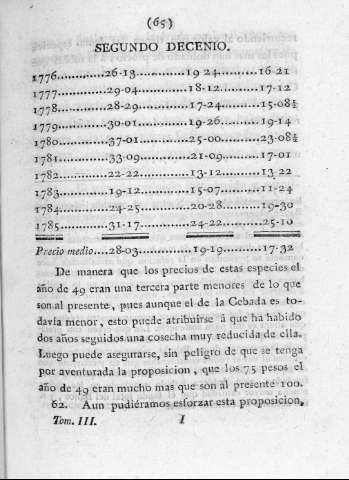 (65)
SEGUNDO DECENIO.
1776............26-13............19 24.........16-21
1777............29-04............18-12.........17-12
1778............28-29............17-24.........15-08½
1779............30-01............19-26.........19-14
1780............37-01............25-00.........23-08½
1781............33-09............21-09.........17-01
1782............22-22............13-12.........13 22
1783............19-12............15-07.........11-24
1784............24-25............20-28.........19-30
1785............31-17............24-22.........25-10
Precio medio....28-03............19-19.........17-32
De manera que los precios de estas especies el
año de 49 eran una tercera parte menores de lo que
son al presente, pues aunque el de la Cebada es to-
davia menor, esto puede atribuirse á que ha habido
dos años seguidos una cosecha muy reducida de ella.
Luego puede asegurarse, sin peligro de que se tenga
por aventurada la proposicion, que los 75 pesos el
año de 49 eran mucho mas que son al presente 100.
62. Aun pudiéramos esforzar esta proposicion,
Tom. III. I